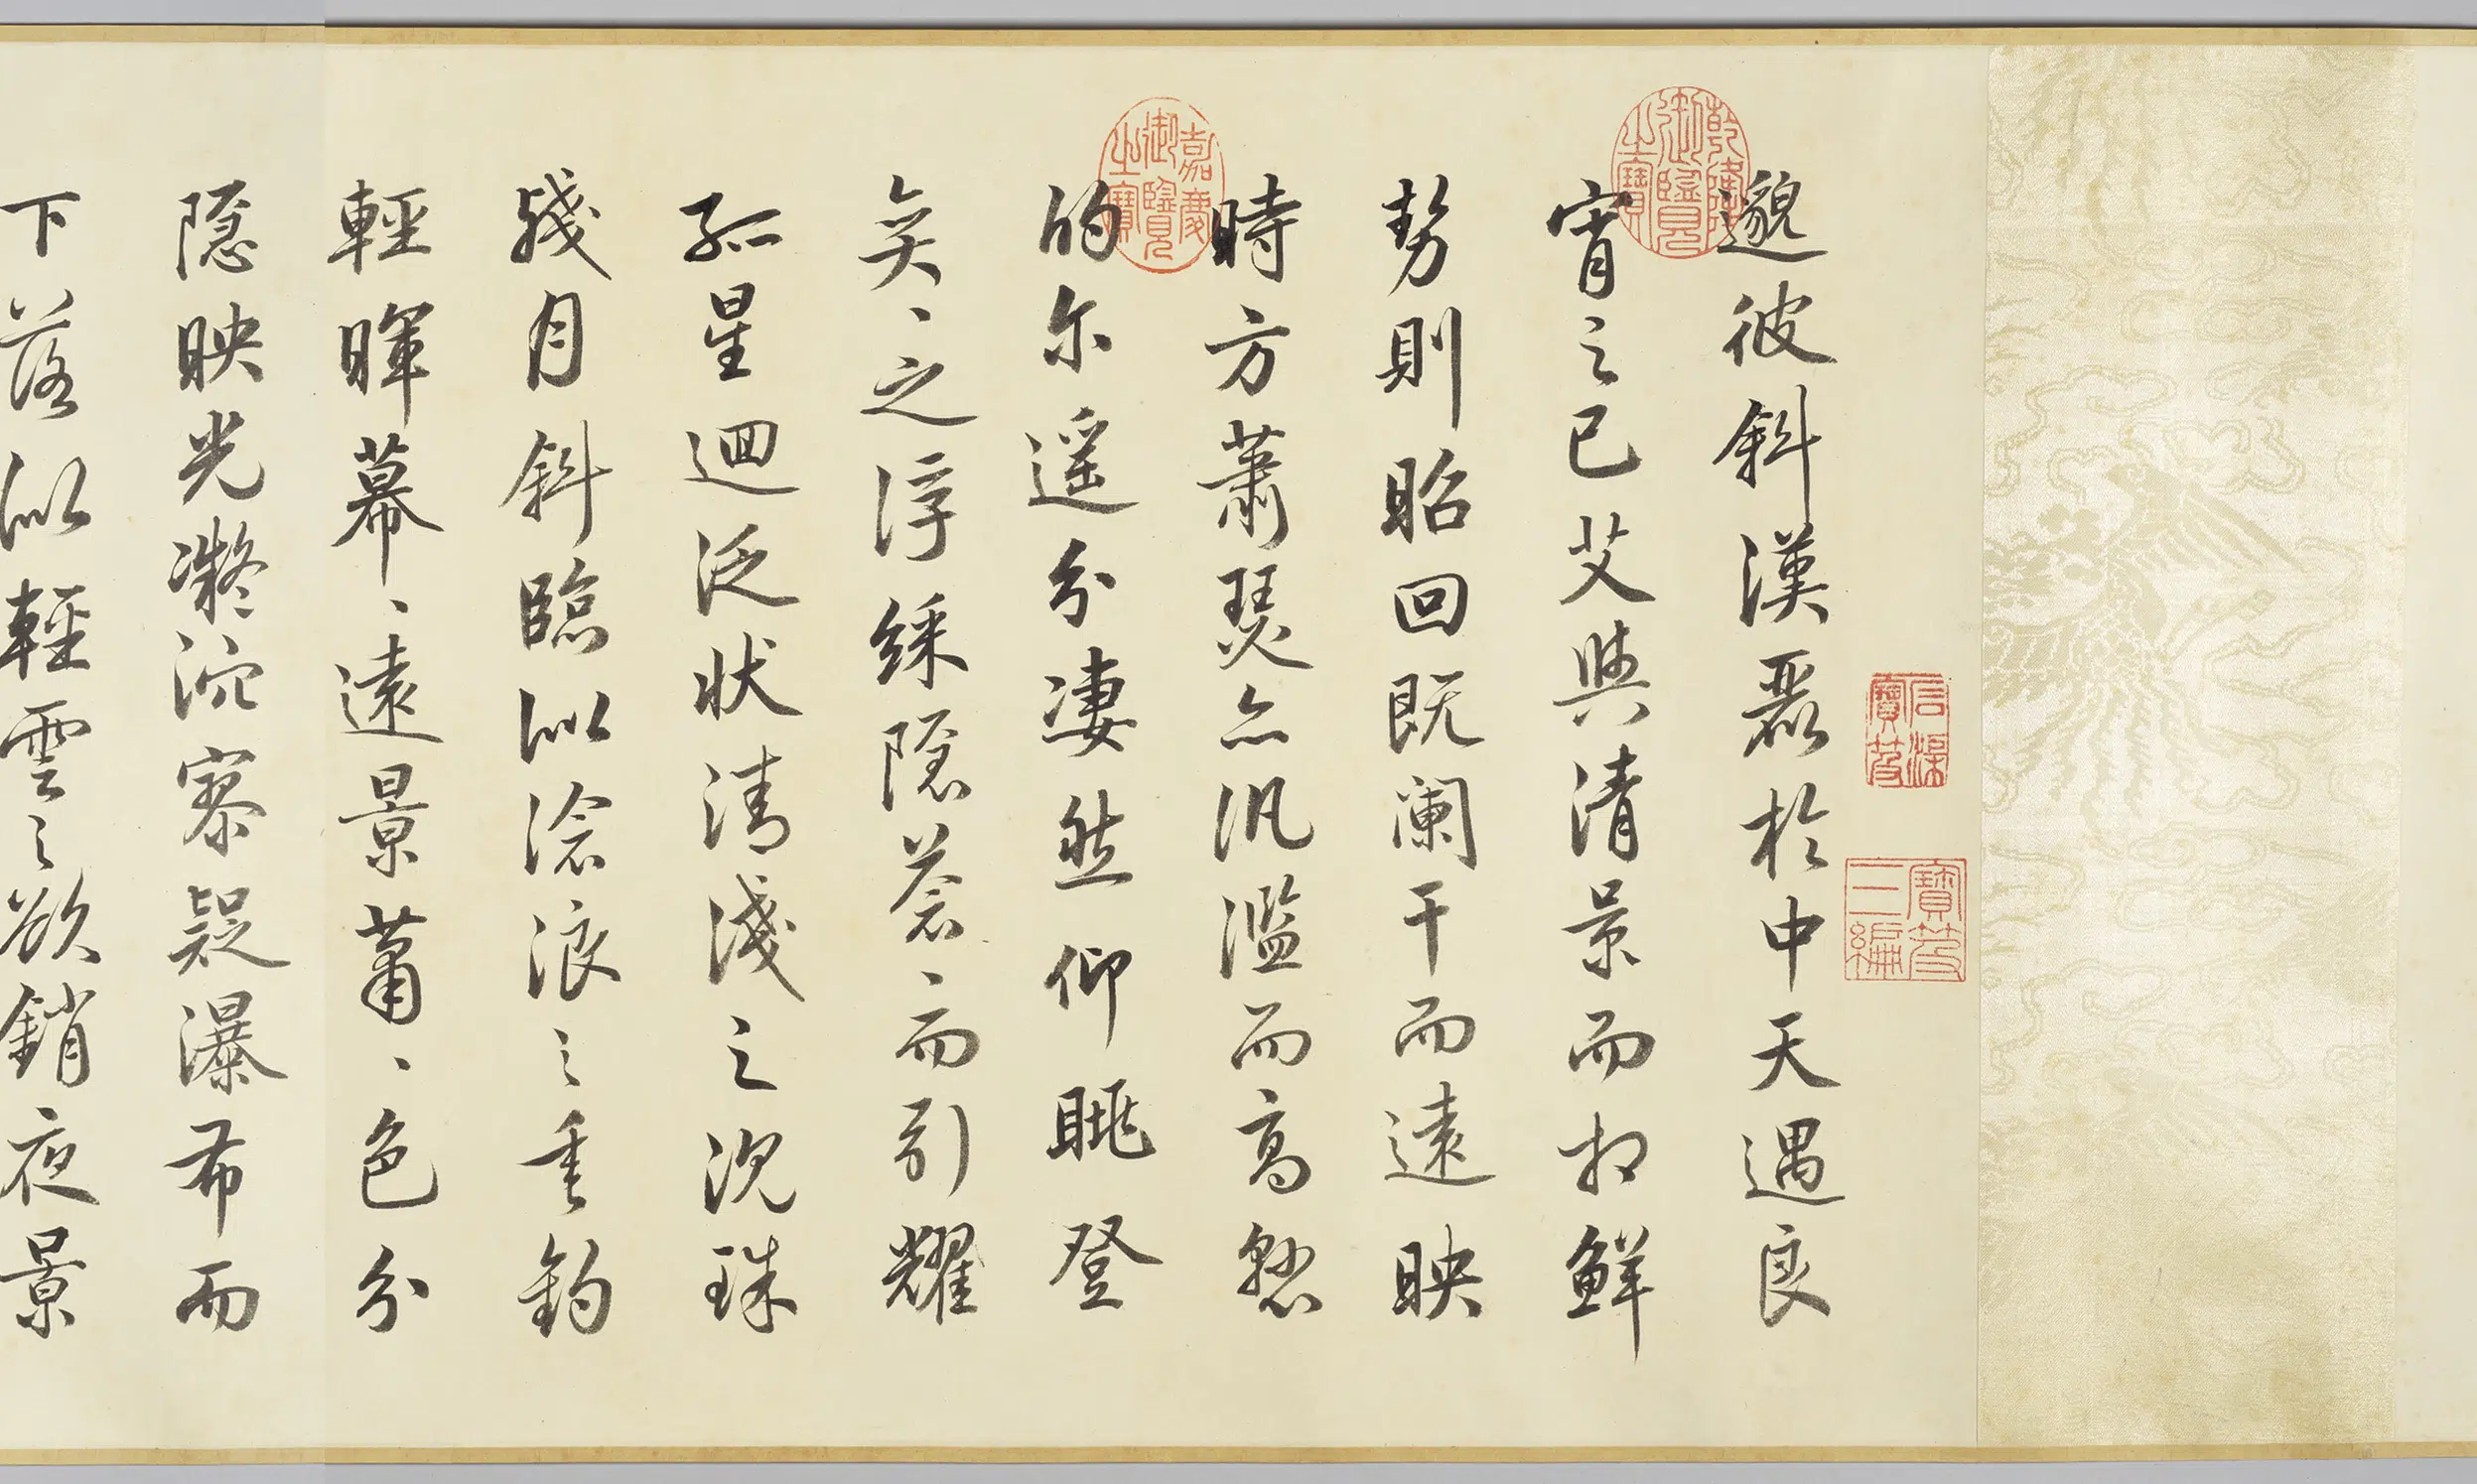 邈彼斜漢麗於中天遇良
宵之已艾與清景而相鮮
勢則昭回既闌干而遠映
時方蕭瑟亦汎濫而高懸
的尔遥分凄然仰眺登
奕、之浮綵隱蒼、而引耀
孤星迴泛狀清淺之沉珠
殘月斜臨似滄浪之垂鈞
輕暉冪、遠景蕭、色分
隱映光凝泬寥疑瀑布而
下落似輕雲之欲銷夜景
乾隆御覽之寶
嘉慶御覽之寶
寶笈三編